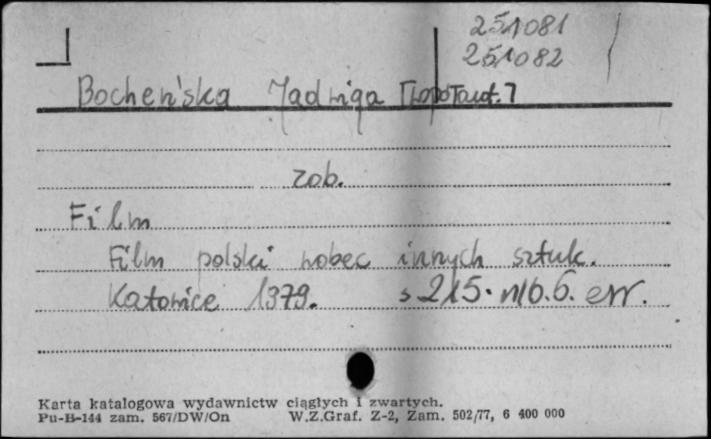 251081
251082
Bocheńska Jadwiga [Hopotawt.]
zob.
Film
Film polski wobec innych sztuk.
Katowice 1979. s 215. nlb. 6. err.
Karta katalogowa wydawnictw ciągłych i zwartych.
Pu-B-144 zam. 567/DW/On W.Z.Graf. Z-2, Zam. 502/77, 6 400 000